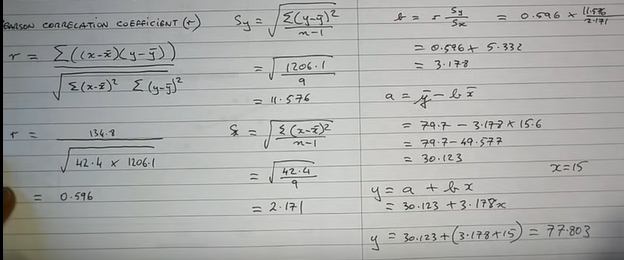 PEARSON CORRELATION COEFFICIENT (r)
r = Σ((x-x̄)(y-ȳ)) / √(Σ(x-x̄)² Σ(y-ȳ)²)
r = 134.8 / √(42.4 × 1206.1)
= 0.596
Sy = √(Σ(y-ȳ)² / n-1)
= √(1206.1 / 9)
= 11.576
Sx = √(Σ(x-x̄)² / n-1)
= √(42.4 / 9)
= 2.171
b = r Sy/Sx = 0.596 × 11.576/2.171
= 0.596 + 5.332
= 3.178
a = ȳ - b x̄
= 79.7 - 3.178 × 15.6
= 79.7 - 49.577
= 30.123
x=15
y = a + bx
= 30.123 + 3.178x
y = 30.123 + (3.178+15) = 77.803